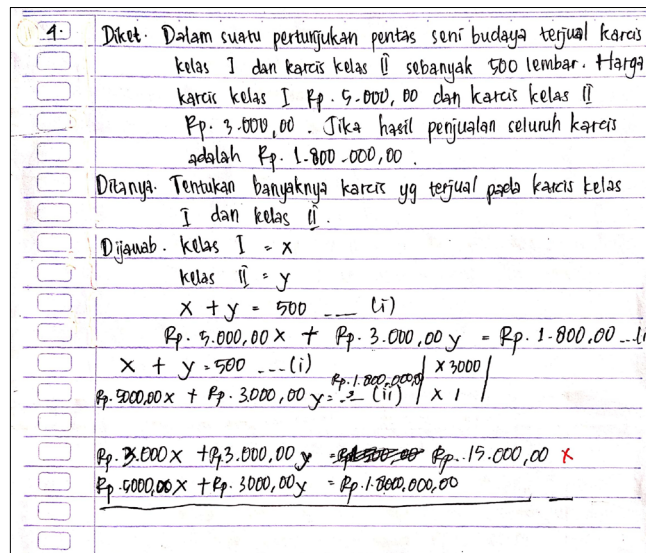 4. Diket. Dalam suatu pertunjukan pentas seni budaya terjual karcis
kelas I dan karcis kelas II sebanyak 500 lembar. Harga
karcis kelas I Rp. 5.000,00 dan karcis kelas II
Rp. 3.000,00. Jika hasil penjualan seluruh karcis
adalah Rp. 1.800.000,00.
Ditanya. Tentukan banyaknya karcis yg terjual pada karcis kelas
I dan kelas II.
Dijawab. kelas I = x
kelas II = y
x + y = 500 ___ (i)
Rp. 5.000,00 x + Rp. 3.000,00 y = Rp. 1.800,00 ...(i
x + y = 500 ...(i) | x 3000 |
Rp. 5000,00 x + Rp. 3.000,00 y = Rp. 1.800.000,00 ... (ii) | x 1 |
Rp. 3.000 x + Rp 3.000,00 y = Rp. 15.000,00 x
Rp. 5000,00 x + Rp. 3000,00 y = Rp. 1.800.000,00